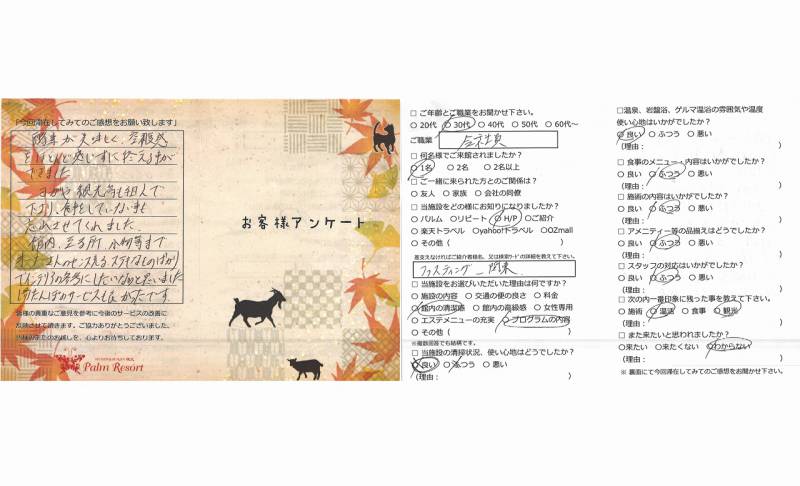 「今回滞在してみてのご感想をお願い致します」
酵素が美味しく、空腹感
をほとんど感じずに終える事が
できました
ヨガや観光等も組んで
下さり、何をしていいかを
忘れさせてくれました。
館内、至る所、小物等まで
オーナーさんのセンスのよいステキなものばかり
でインテリアの参考にしたいなぁと思いました
湯たんぽのサービスも良かったです。
皆様の貴重なご意見を参考に今後のサービスの改善に
反映させて頂きます。ご協力ありがとうございました。
皆様のまたのお越しを、心よりお待ちしております。
Palm Resort
お客様アンケート
□ ご年齢とご職業をお聞かせ下さい。
○ 20代 ○ 30代 ○ 40代 ○ 50代 ○ 60代～
ご職業 会社員
□ 何名様でご来館されましたか？
○ 1名 ○ 2名 ○ 2名以上
□ ご一緒に来られた方とのご関係は？
○ 友人 ○ 家族 ○ 会社の同僚
□ 当施設をどの様にお知りになりましたか？
○ パルム ○ リピート ○ H/P ○ご紹介
○ 楽天トラベル ○ yahoo!トラベル ○ OZmall
○ その他（ ）
差支えなければご紹介者様名、又は検索ワードの詳細を教えて下さい。
ファスティング 関東
□ 当施設をお選びいただいた理由は何ですか？
○ 施設の内容 ○ 交通の便の良さ ○ 料金
○ 館内の清潔感 ○ 館内の高級感 ○ 女性専用
○ エステメニューの充実 ○ プログラムの内容
○ その他（ ）
※複数回答でも結構です。
□ 当施設の清掃状況、使い心地はどうでしたか？
○ 良い ○ ふつう ○ 悪い
（理由： ）
□温泉、岩盤浴、ゲルマ温浴の雰囲気や温度
使い心地はいかがでしたか？
○ 良い ○ ふつう ○ 悪い
（理由： ）
□ 食事のメニュー・内容はいかがでしたか？
○ 良い ○ ふつう ○ 悪い
（理由：
□ 施術の内容はいかがでしたか？
○ 良い ○ ふつう ○ 悪い
□ アメニティー等の品揃えはどうでしたか？
○ 良い ○ ふつう ○ 悪い
（理由： ）
□ スタッフの対応はいかがでしたか？
○ 良い ○ ふつう ○ 悪い
（理由： ）
□ 次の内一番印象に残った事を教えて下さい。
○ 施術 ○ 温活 ○ 食事 ○ 観光
□ また来たいと思われましたか？
○来たい ○来たくない ○わからない
（理由： ）
※ 裏面にて今回滞在してみてのご感想をお聞かせ下さい。